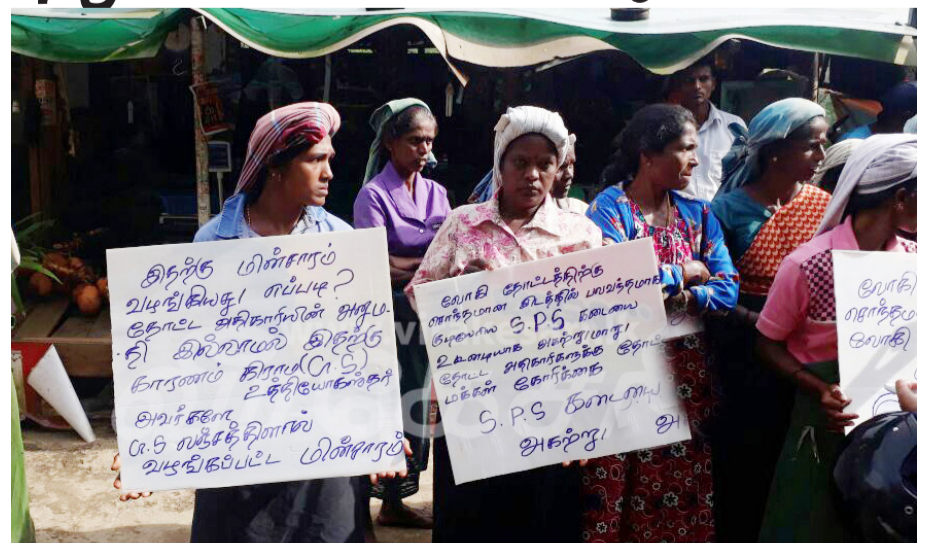 இதற்கு மின்சாரம்
வழங்கியது எப்படி?
தோட்ட அதிகாரியின் அனும-
தி இல்லாமல் இதற்கு
காரணம் கிராம (G.S)
உத்தியோகஸ்தர்
அவர்களே
G.S லஞ்சத்தினால்
வழங்கப்பட்ட மின்சாரம்
லோகி தோட்டத்திற்கு
சொந்தமான இடத்தில் பலவந்தமாக
S.P.S கடையை
உடனடியாக அகற்றுமாறு
தோட்ட அதிகாரிகளுக்கு தோட்ட
மக்கள் கோரிக்கை
S.P.S கடையை
அகற்று அ
லோகி
சொந்தம
லோகி